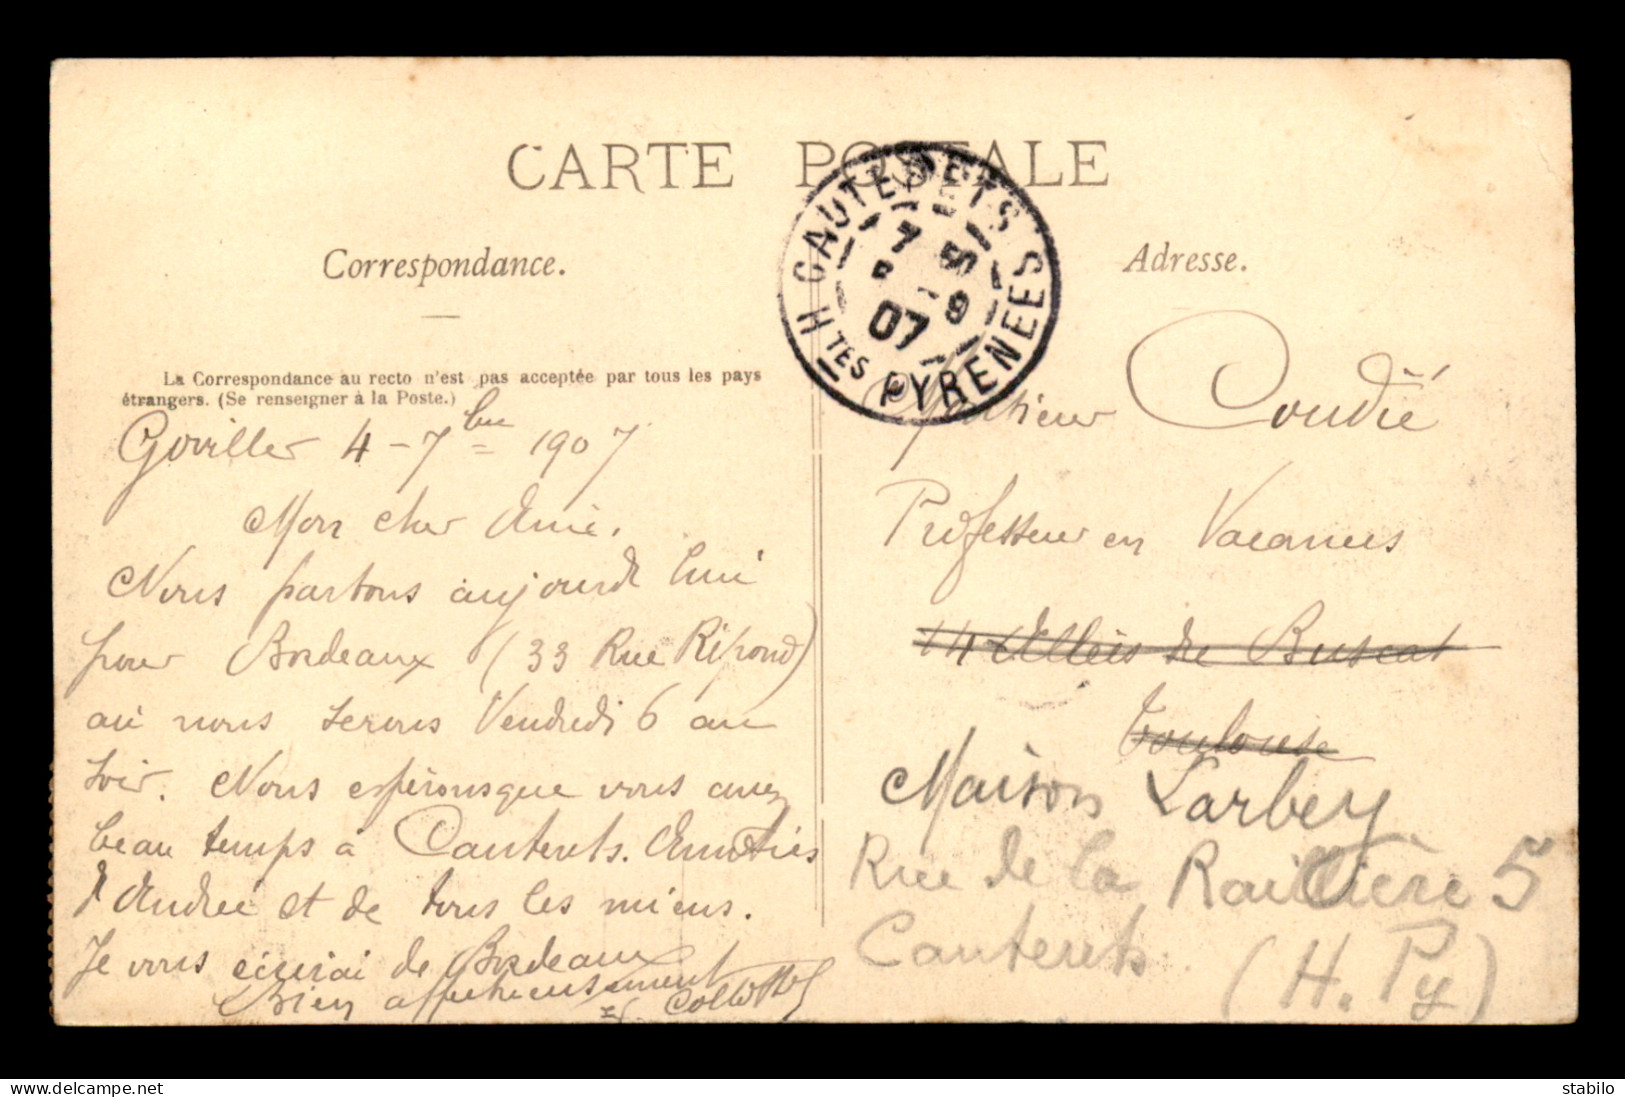 CARTE POSTALE
Correspondance.
La Correspondance au recto n'est pas acceptée par tous les pays
étrangers. (Se renseigner à la Poste.)
Goviller 4 - 7bre 1907
Mon cher Ami.
Nous partons aujourd'hui
pour Bordeaux (33 Rue
où nous serons Vendredi 6 au
soir. Nous espérons que vous avez
beau temps à Cauterets. Amitiés
d'Andrée et de tous les miens.
Je vous écrirai de Bordeaux
Bien affectueusement
CAUTERETS
7 5
9
07
Htes PYRENEES
Adresse.
Monsieur Coudié
Professeur en Vacances
14 Allées de Buscat
Toulouse
Maison Larbey
Rue de la Raillière 5
Cauterets (H. Py)
stabilo